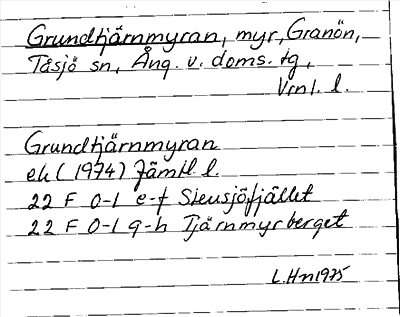 Grundtjärnmyran, myr, Granön,
Tåsjö sn, Ång. v. doms. tg,
Vrnl. l.
Grundtjärnmyran
ek (1974) Jämtl l.
22 F 0-1 e-f Stensjöfjället
22 F 0-1 g-h Tjärnmyrberget
L.Hn 1975